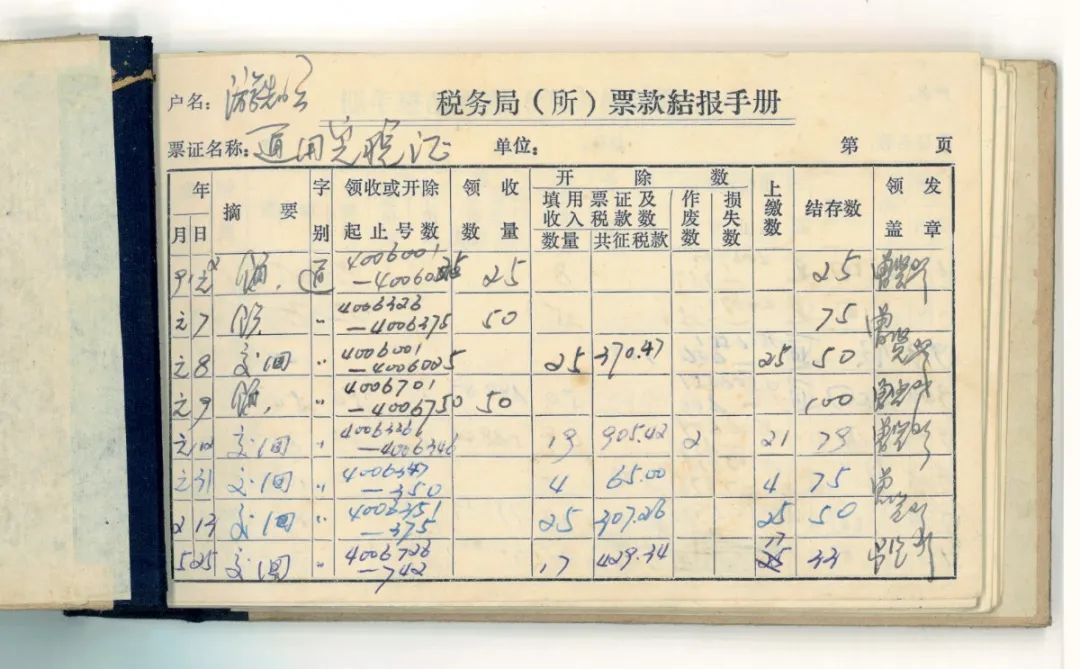 税务局（所）票款结报手册
户名：
票证名称：通用完税证 单位： 第 页
年 月 日 摘要 字别 领收或开除起止号数 领收数量 开除数 填用票证及收入税款数 数量 共征税款 作废数 损失数 上缴数 结存数 领发盖章
通 4006001-4006025 25 25
元 7 〃 4006326-4006375 50 75
元 8 交回 〃 4006001-4006025 25 370.47 25 50
元 9 〃 4006701-4006750 50 100
元 交回 〃 -4006346 19 905.42 2 21 79
元 31 交回 〃 4006347-350 4 65.00 4 75
2 13 交回 〃 4006351-375 25 307.26 25 50
5 25 交回 〃 4006726-742 17 429.34 17 33